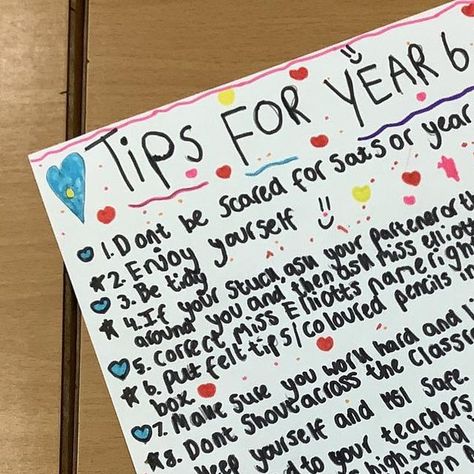 Tips FOR YEAR 6
1. Dont be scared for sats or year
2. Enjoy yourself
3. Be tidy
4. If your stuck ask your partener or the
around you and then ask miss elliott
5. Correct Miss Elliotts name right
6. Put felt tips/coloured pencils
box.
7. Make sure you work hard and
8. Dont shout across the classroom
keep yourself and safe.
to your teachers
highschool.